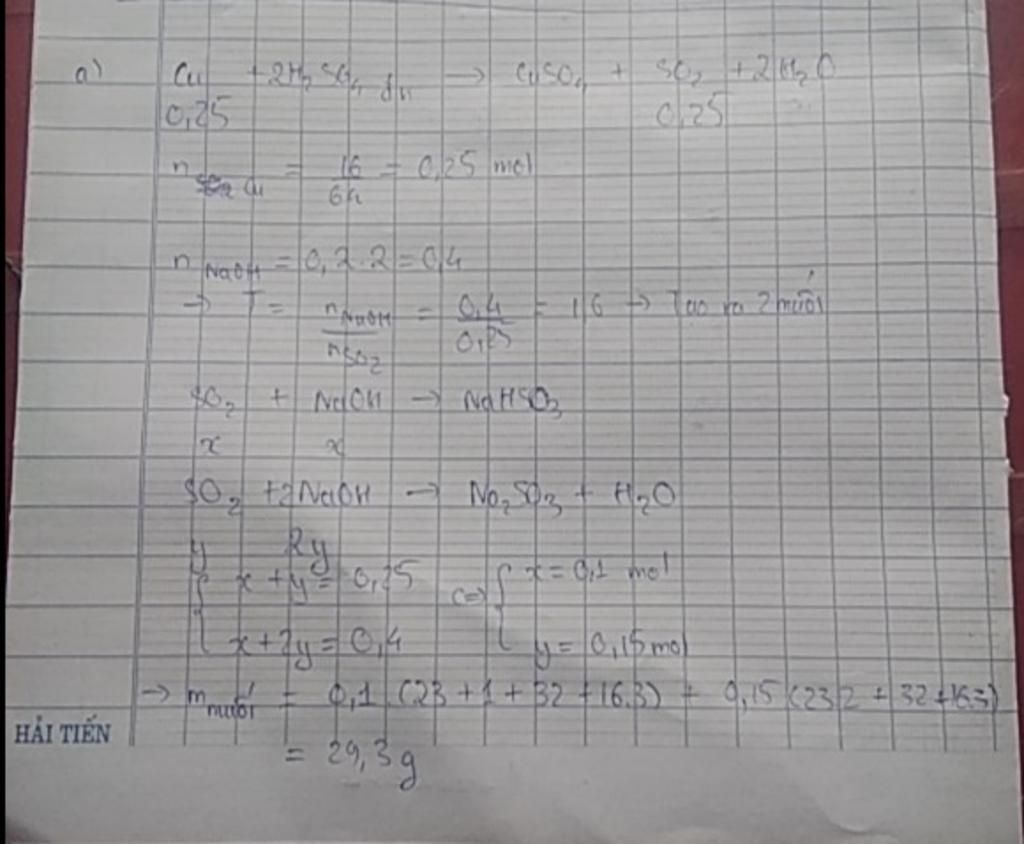 a) Cu + 2H2SO4 đn → CuSO4 + SO2 + 2H2O
0,25 0,25
n Cu = 16/64 = 0,25 mol
n NaOH = 0,2.2 = 0,4
→ T = nNaOH/nSO2 = 0,4/0,25 = 1,6 → Tạo ra 2 muối
SO2 + NaOH → NaHSO3
x x
SO2 + 2NaOH → Na2SO3 + H2O
y 2y
{ x + y = 0,25 <=> { x = 0,1 mol
x + 2y = 0,4 y = 0,15 mol
→ m muối = 0,1.(23 + 1 + 32 + 16.3) + 0,15(23.2 + 32 + 16.3)
= 29,3 g
HẢI TIẾN